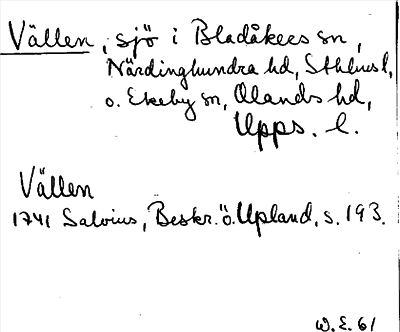 Vällen, sjö i Bladåkers sn,
Närdinghundra hd, Sthlms l,
o. Ekeby sn, Olands hd,
Upps. l.
Vällen
1741 Salvius, Beskr. ö. Upland, s. 193.
W.E. 61